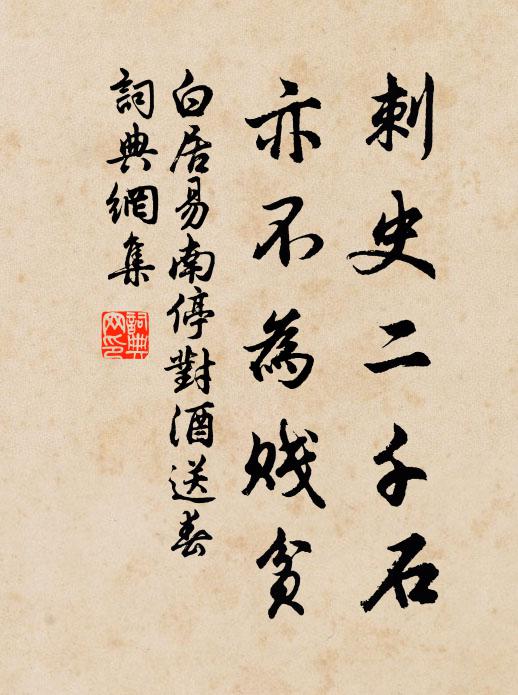 刺史二千石
亦不為賤貧
白居易南停對酒送春
詞典網集
詞典網印